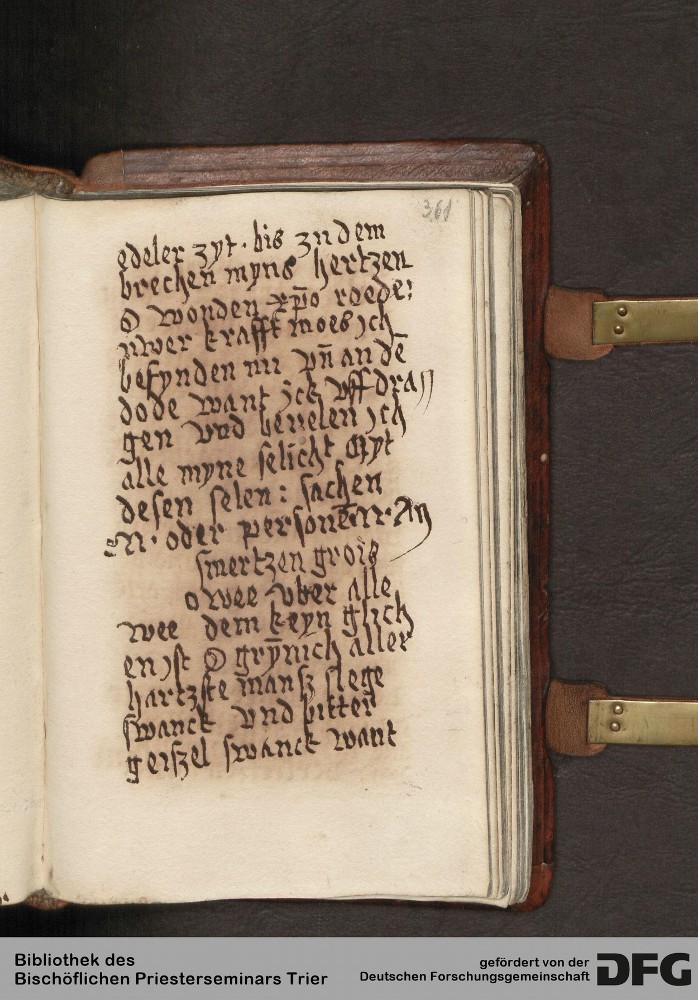 361
edeler zyt · bis zu dem
brechen myns hertzen
O wonden xp̄o roede:
uwer krafft moes ich
befynden nu vn̄ an dē
dode want ich vff dra
gen vnd beuelen ich
alle myne selicht Myt
desen selen : sachen
N · oder personē · N · An
smertzen grois
o wee vber alle
wee dem keyn glich
en ist O grȳnich aller
hartzste mansz slege
swanck vnd bitter
geiszel swanck want
Bibliothek des
Bischöflichen Priesterseminars Trier
gefördert von der
Deutschen Forschungsgemeinschaft
DFG